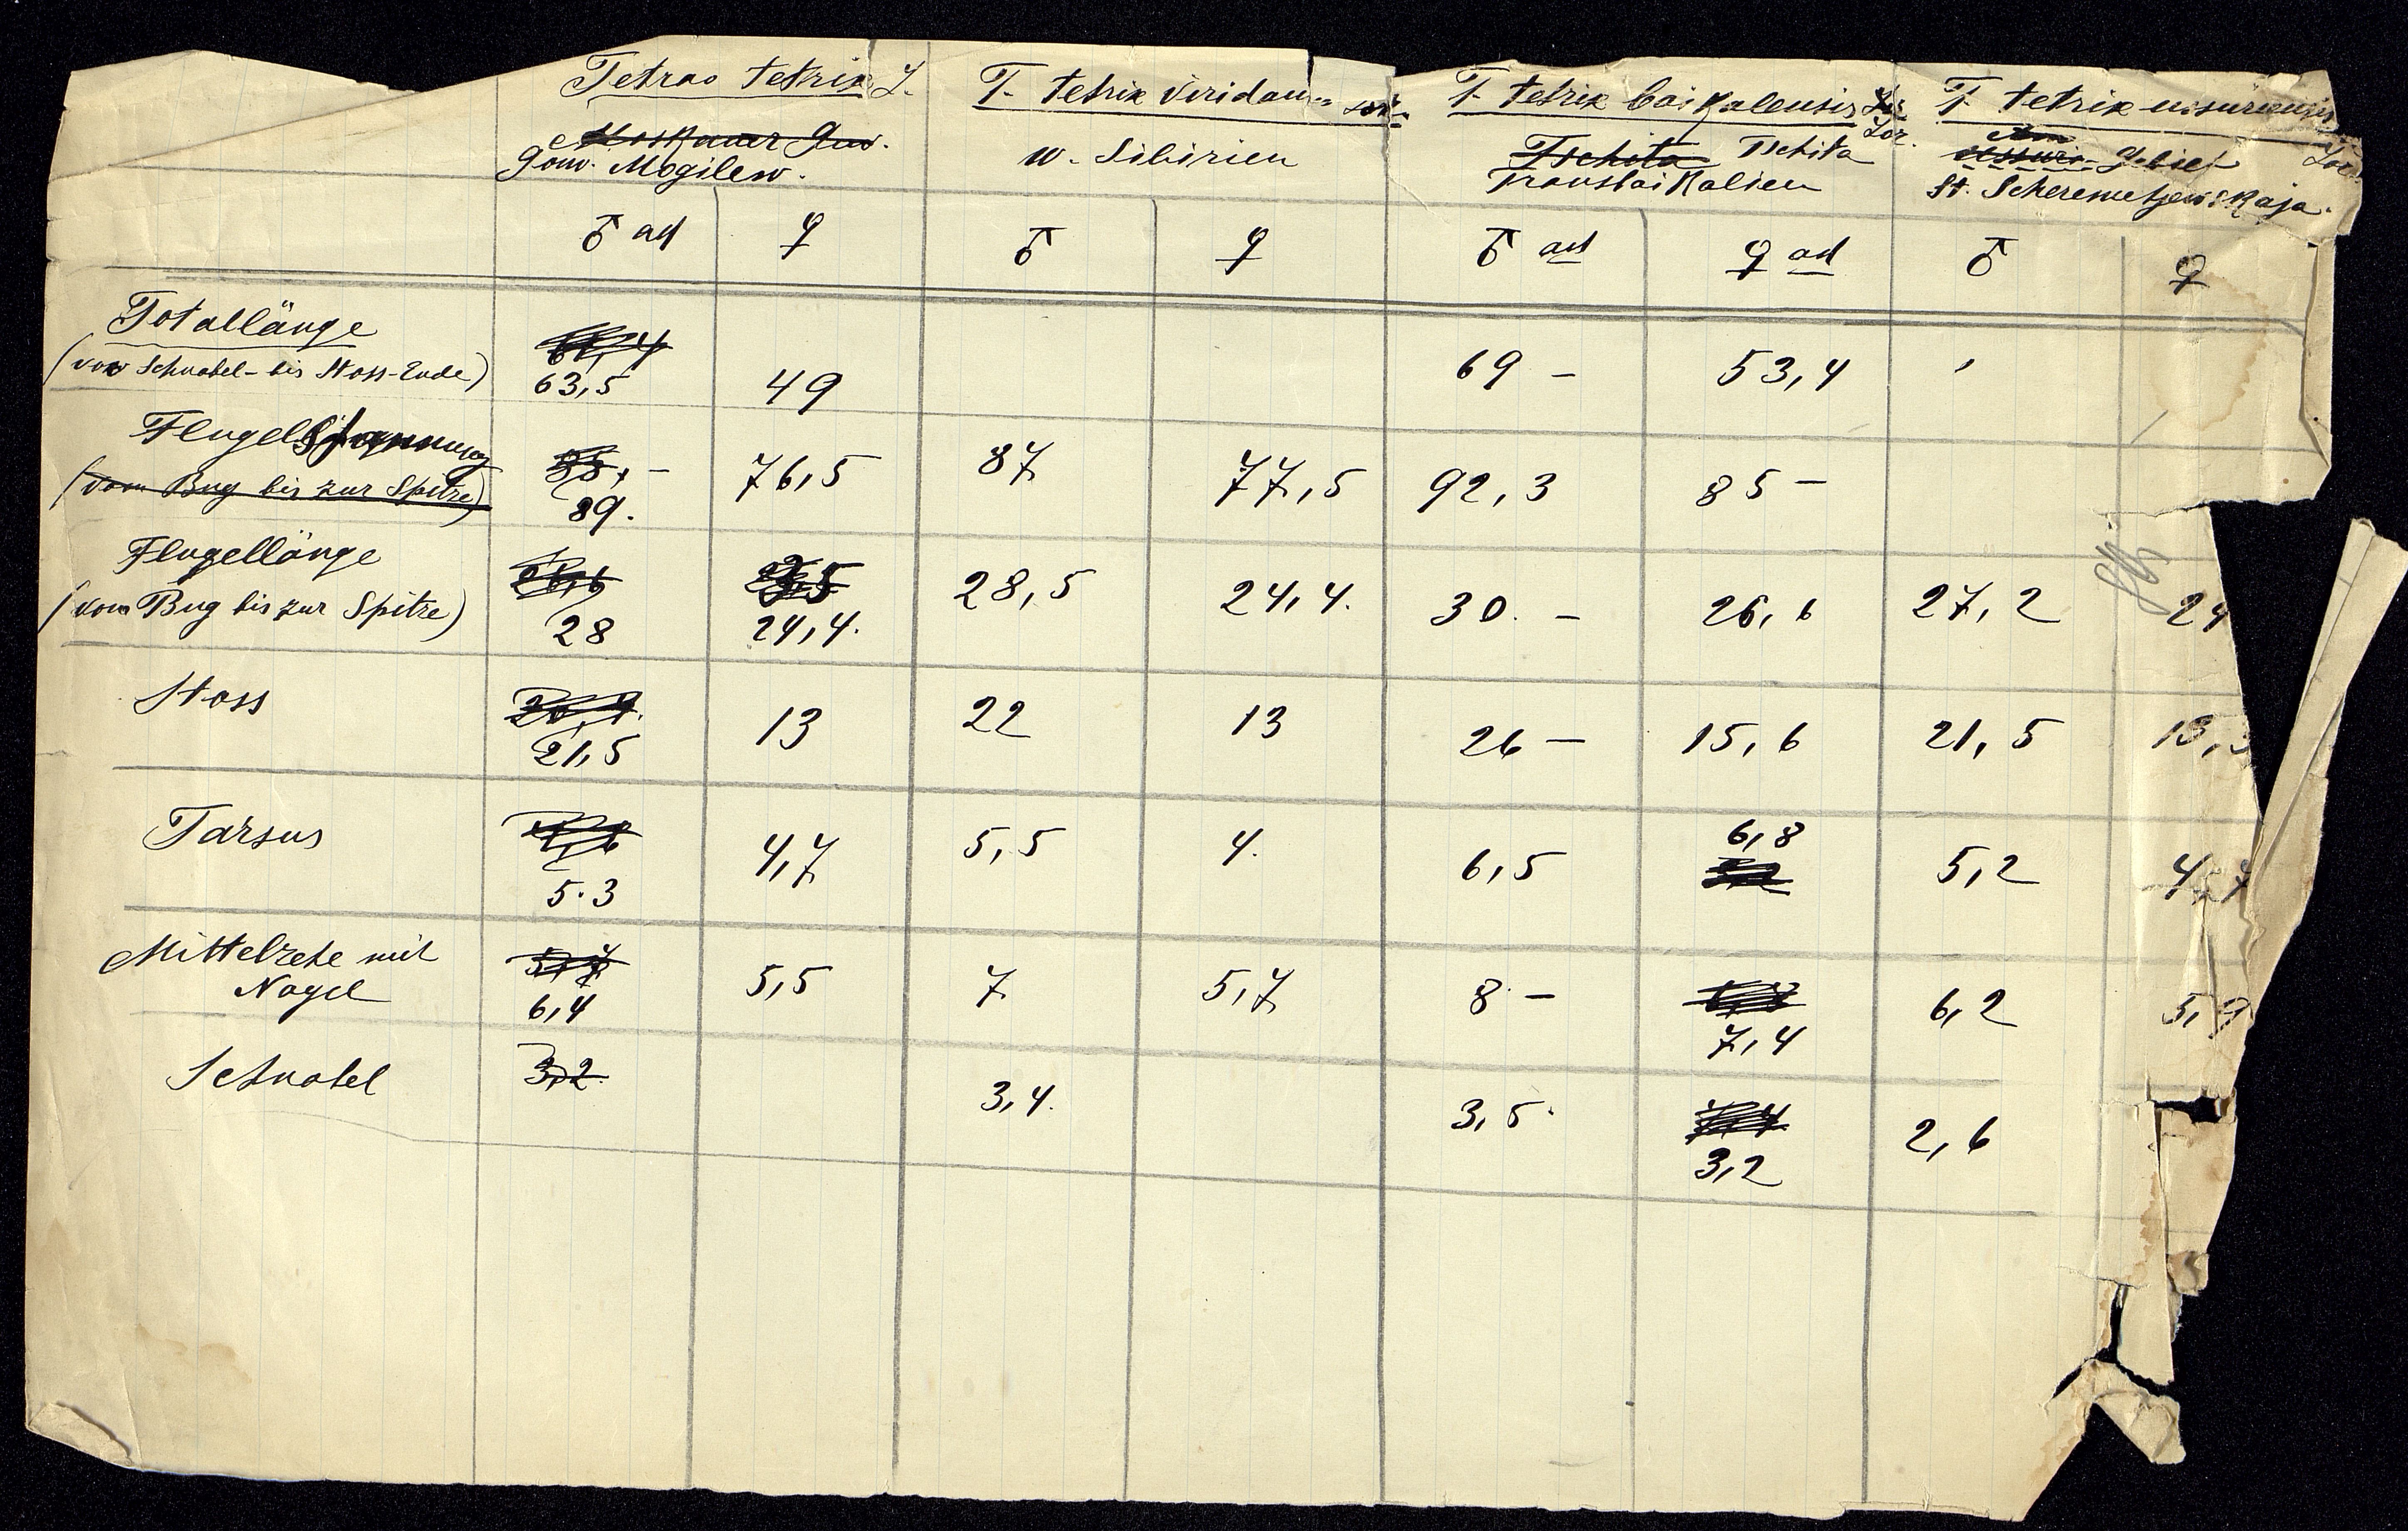 Tetrao tetrix L. T. tetrix viridanus Lor. T. tetrix baikalensis Lor. T. tetrix ussuriensis Lor.
Moskauer Gouv. W. Sibirien Tschita Tschita Ussuri-Gebiet
Gouv. Mogilew. Transbaikalien St. Scheremetjewskaja.
♂ ad ♀ ♂ ♀ ♂ ad ♀ ad ♂ ♀
Totallänge
(von Schnabel- bis Stoss-Ende) 63,5 49 69 – 53,4
Flugelspannung
(vom Bug bis zur Spitze) 89. 76,5 87 77,5 92,3 85 –
Flugellänge
(vom Bug bis zur Spitze) 28 24,4. 28,5 24,4. 30. – 26,6 27,2 24
Stoss 21,5 13 22 13 26 – 15,6 21,5 13,3
Tarsus 5.3 4,7 5,5 4. 6,5 6,8 5,2 4,7
Mittelzehe mit
Nagel 5,7 6,4 5,5 7 5,7 8 – 7,4 6,2 5,9
Schnabel 3,2. 3,4. 3,5. 3,2 2,6